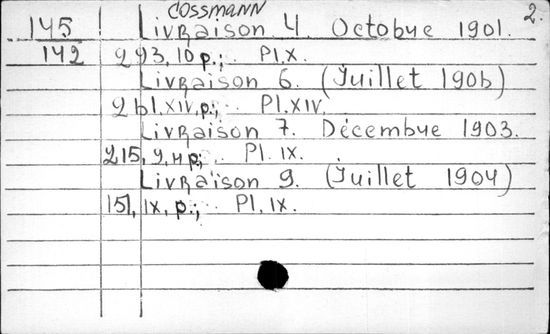 COSSMANN
2.
145 Livraison 4. Octobre 1901.
142 293, 10 p.; Pl. X.
Livraison 6. (Juillet 1906)
261, XIV, p.; Pl. XIV.
Livraison 7. Décembre 1903.
215, 9, 4 p.; Pl. IX.
Livraison 9. (Juillet 1904)
151, IX, p.; Pl. IX.